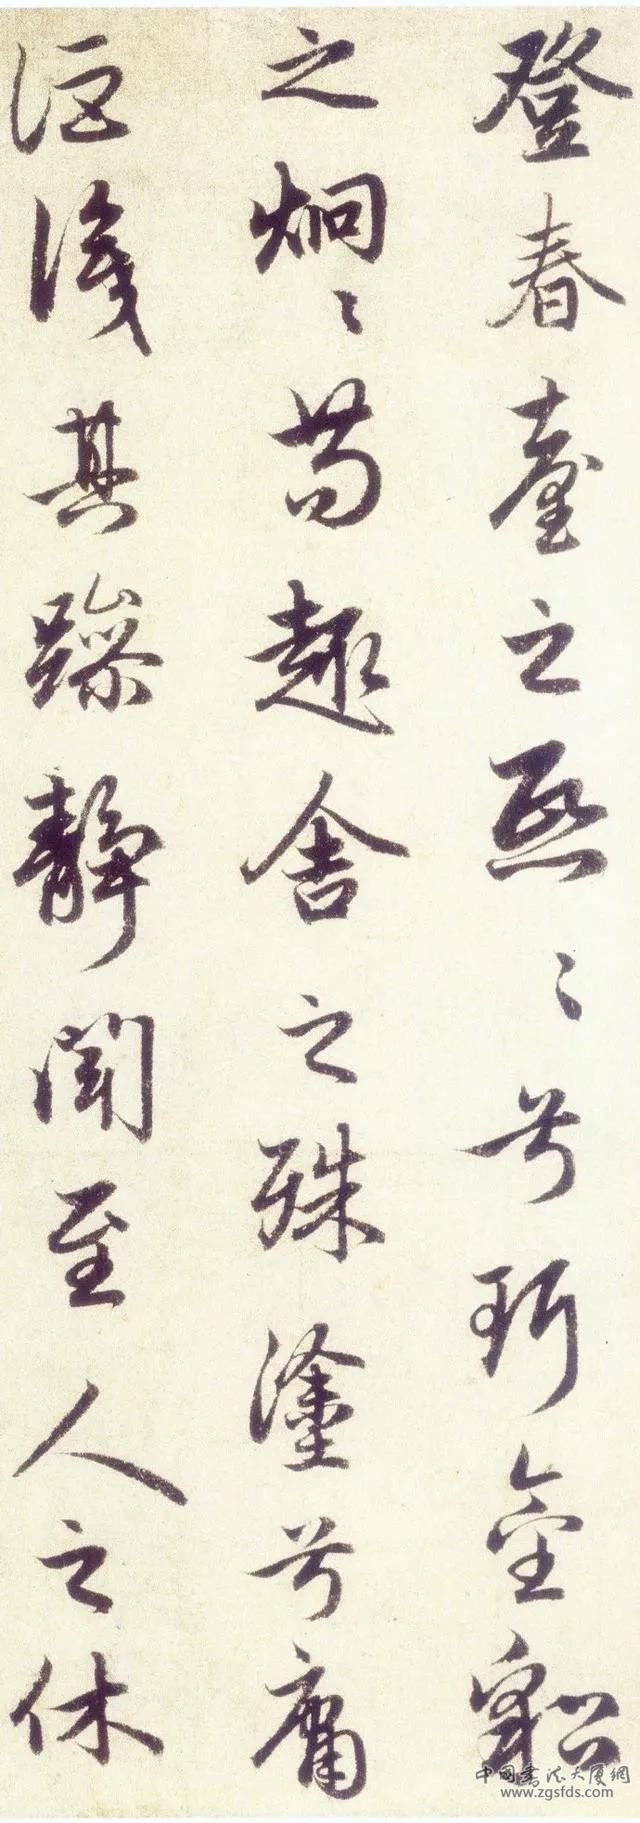 登春臺之熙〻兮珥金貂
之炯〻苟趣舍之殊塗兮庸
詎識其躁靜聞至人之休
中國書法大厦網
www.zgsfds.com